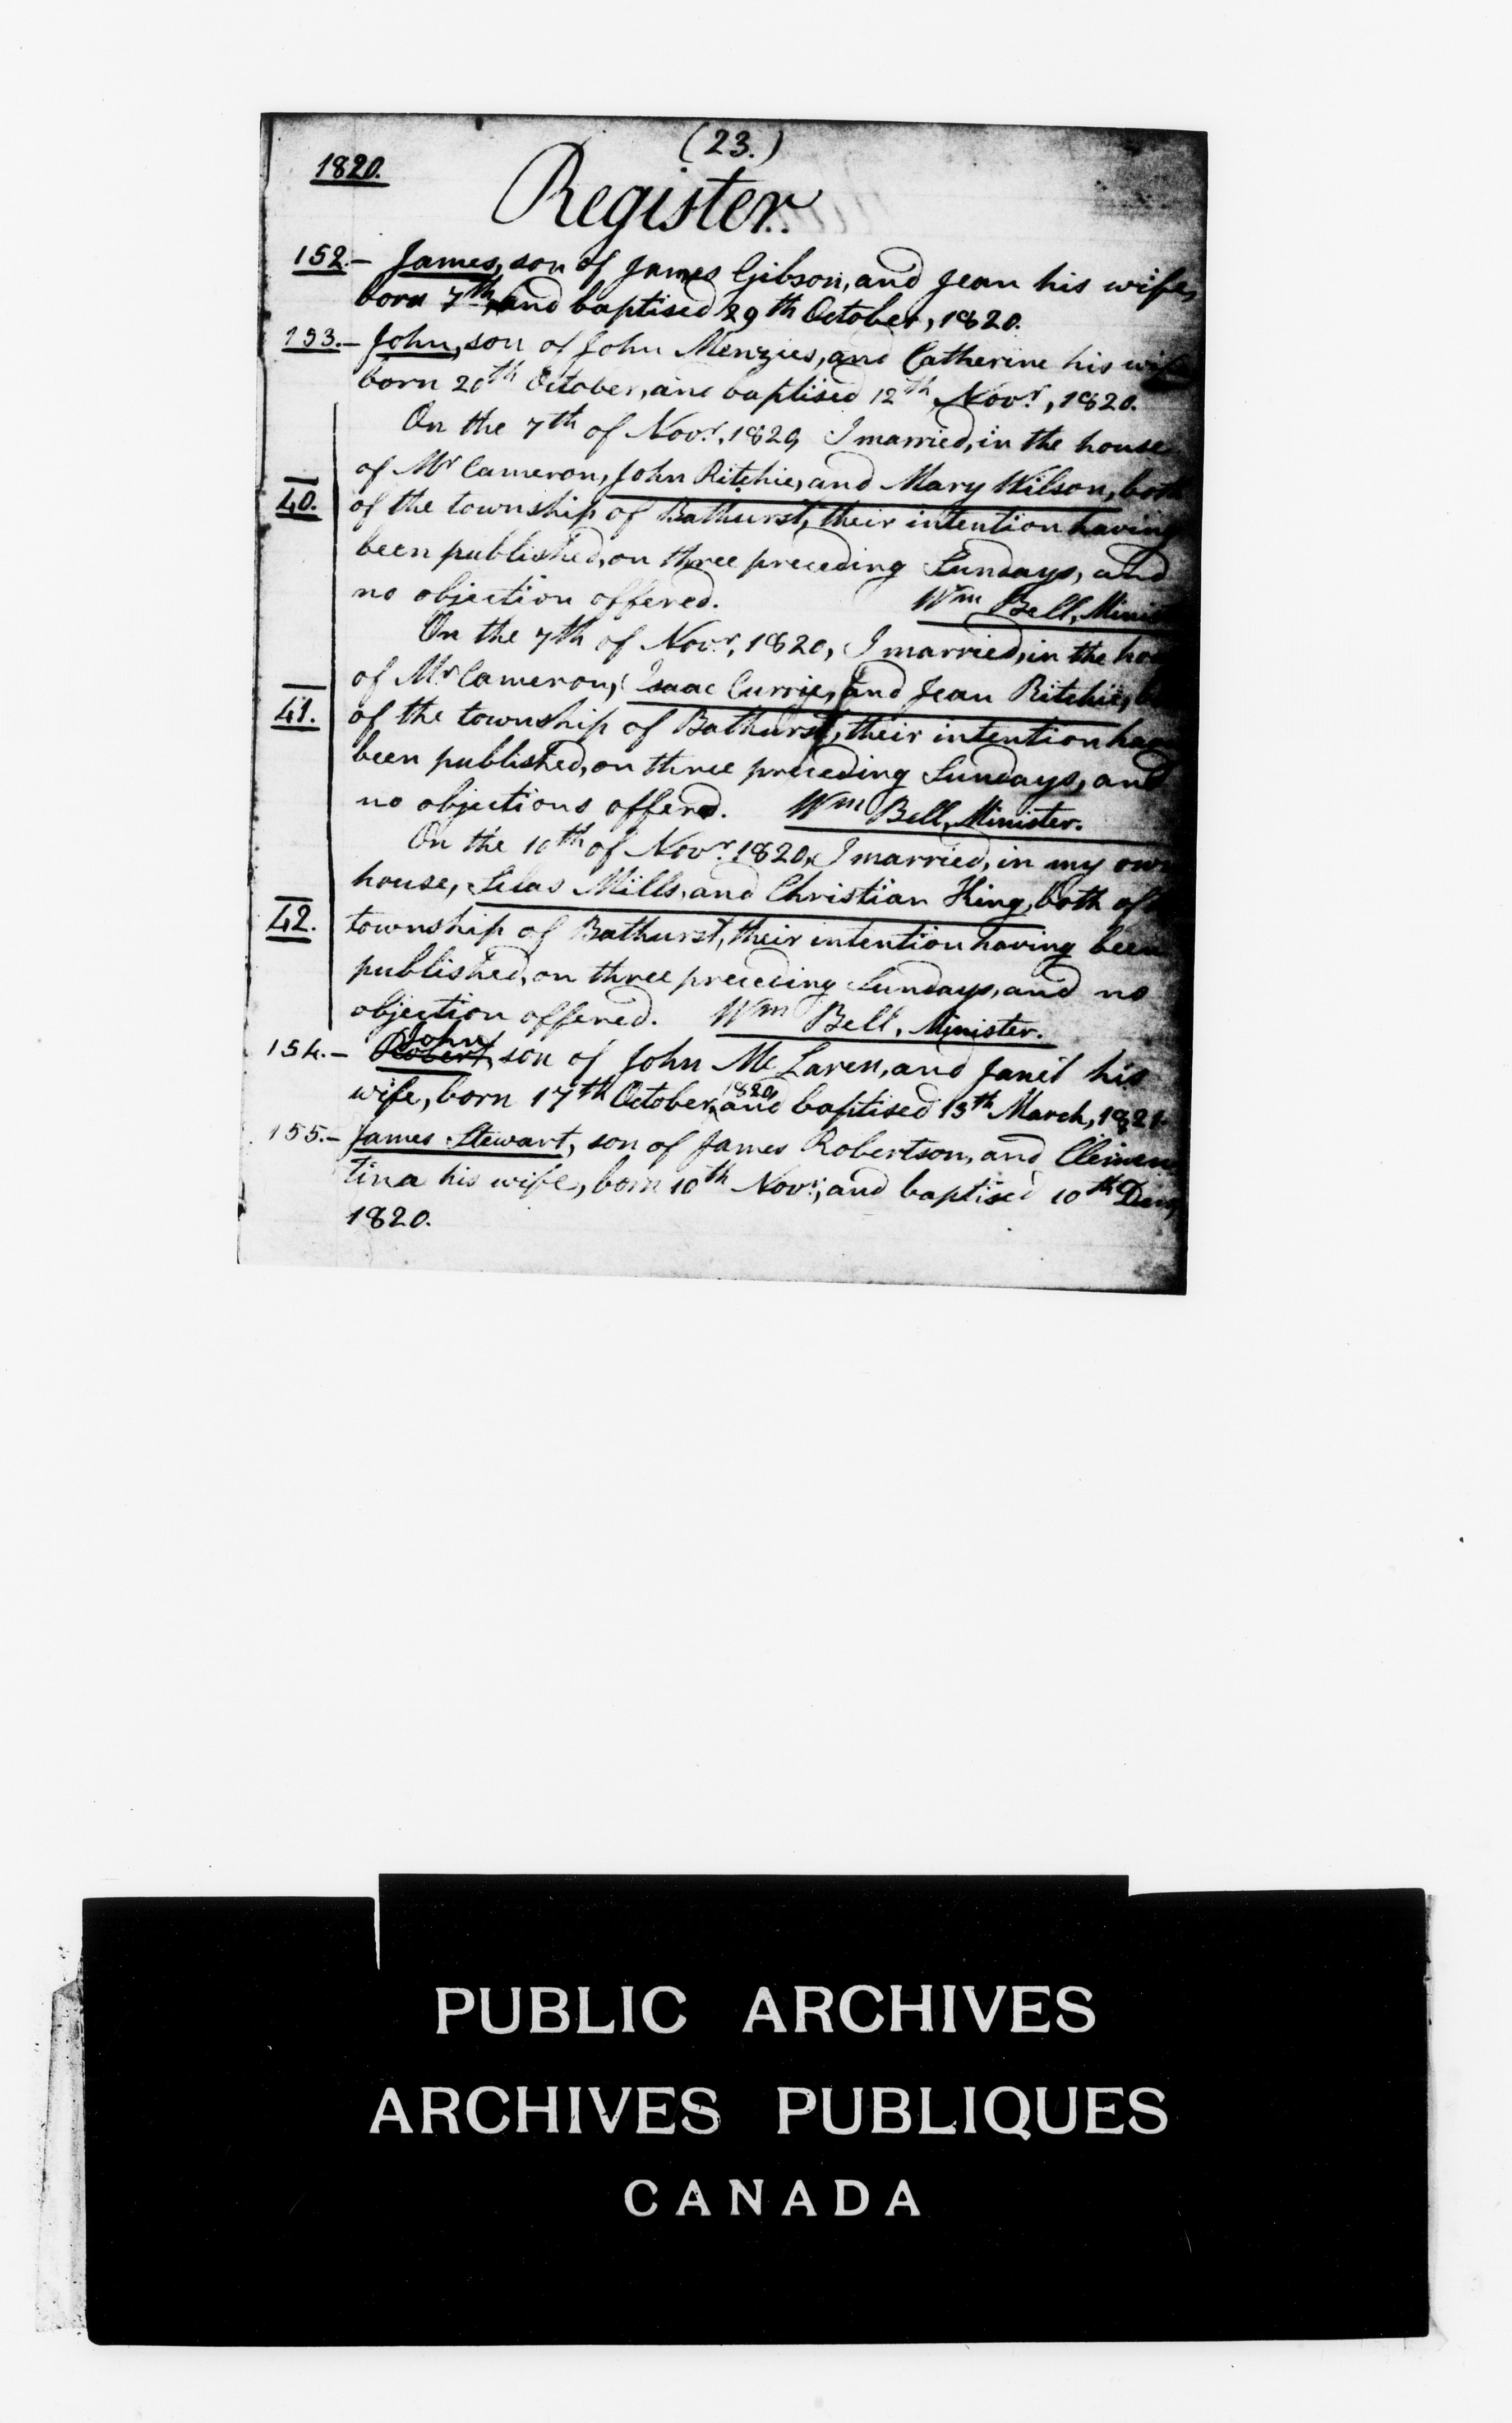 (23.)
1820.
Register.
152.– James, son of James Gibson, and Jean his wife,
born 7th, and baptised 29th October, 1820.
153.– John, son of John Menzies, and Catherine his wife
born 20th October, and baptised 12th Novr., 1820.
On the 7th of Novr., 1820, I married, in the house
of Mr Cameron, John Ritchie, and Mary Wilson, both
40. of the township of Bathurst, their intention having
been published, on three preceding Sundays, and
no objection offered. Wm Bell, Minist
On the 7th of Novr., 1820, I married, in the hou
of Mr Cameron, Isaac Currie, and Jean Ritchie, b
41. of the township of Bathurst, their intention hav
been published, on three preceding Sundays, and
no objections offered. Wm Bell, Minister.
On the 10th of Novr. 1820, I married, in my own
house, Silas Mills, and Christian King, both of
42. township of Bathurst, their intention having been
published, on three preceding Sundays, and no
objection offered. Wm Bell, Minister.
John
154.– Robert, son of John Mc Laren, and Janet his
wife, born 17th October, 1820, and baptised 13th March, 1821.
155.– James Stewart, son of James Robertson, and Clemen
tina his wife, born 10th Novr., and baptised 10th Decr,
1820.
PUBLIC ARCHIVES
ARCHIVES PUBLIQUES
CANADA